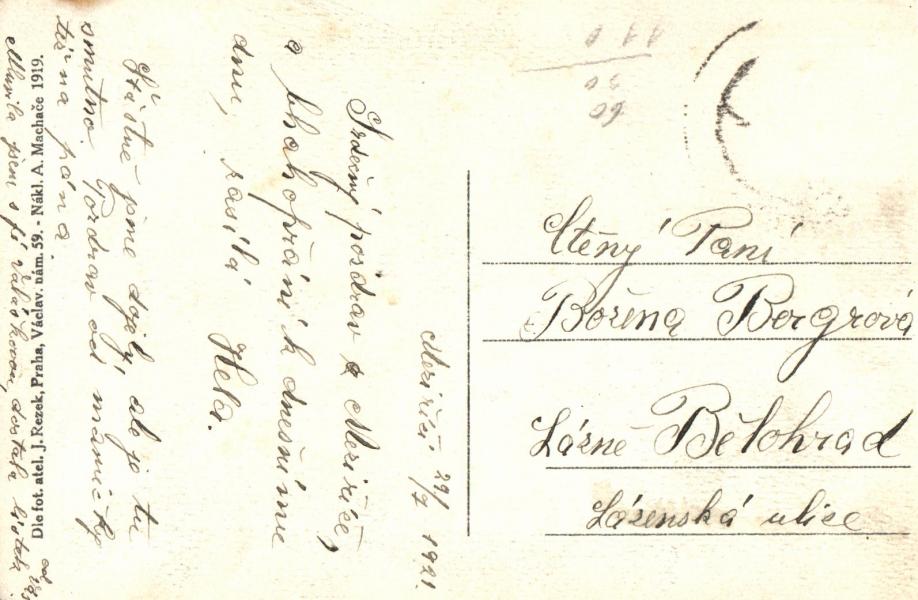 Meziříčí 29/7 1921.
Srdečný pozdrav z Meziříčí,
a blahopřání k dnešnímu
dni, zasílá Hela.
Šťástně jsme dojely, ale je tu
smutno. Pozdrav od maminky
též na pána.
Mluvila jsem s
Dle fot. atel. J. Rezek, Praha, Václav. nám. 59. - Nákl. A. Machače 1919.
60
50
110
Ctěný Paní
Božena Bergrová
Lázně Bělohrad
Lázenská ulice